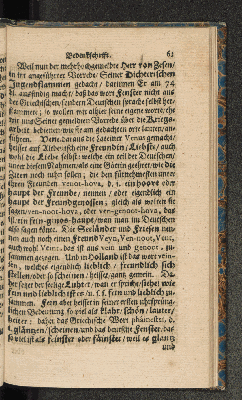 Bedenkschrifft. 61
Weil nun der mehr-hochgemeldte Herr von Zesen/
in ixt angeführter Vorrede/ Seiner Dichterischen
Jugendflammen gedacht/ darinnen Er am 74
bl. ansichtig macht/ daß das wort Fenster nicht aus
der Griechischen/ sondern Deutschen sprache selbst her
stammet; so wollen wir alhier seine eigene worte/ die
wir immer Seiner gemeldten Vorrede über die Kriegs-
arbeit bedienen/ wie sie am gedachten orte lauten/ an-
führen. Denn der aus die Lateiner Venus gemacht/
heisset auf Altdeutsch eine Freundin/ Liebste/ auch
wohl die Liebe selbst: welche ein teil der Deutschen/
unter diesem Nahmen/ als eine Göttin geehret/ wie die
Zeiten noch ruhet sollen; die den fürnehmesten unter
ihren Freunden venoot-hova, d. i. ein hoove oder
haupt der Freunde, nennen/ oder eigendlich ein
haupt der Freundgenossen; gleich als wolten sie
sagen/ ven-noot-hova, oder ven-genoot-hova, das
ist/ ein fein-genos-haupt/ wan man im Deutschen
also sagen könte. Die Seeländer und Friesen nen-
nen auch noch einen Freund Veyn, Ven-noot, Vent,
auch wohl Vent: das ist aus ven und genoot, zu-
sammen gezogen. Und in Holland ist das wort vein-
sen, welches eigendlich lieblich/ freundlich sich
stellen/ oder so scheinen/ heisset/ gantz gemein. Da-
her saget der seelige Luther/ wan er spricht/ siehe/ wie
fein und lieblich ist es/ u. s. f. fein und lieblich zu-
sammen. Fern aber heisset in seiner ersten uhrsprüng-
lichen Bedeutung so viel als klahr/ schön/ lauter/
heiter: daher das Griechische Wort phainesthai, d.
i. gläntzen/ scheinen/ und das deutsche Fenster, das
so viel ist als feinster oder fäinster, weil es glantz
und